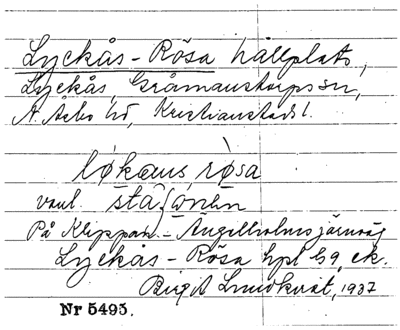 Lyckås-Rösa hållplats,
Lyckås, Gråmanstorps sn,
N. Åsbo hd, Kristianstads l.
løkɑus rø̀sa
vanl. staʃonən
På Klippan-Ängelholms järnväg
Lyckås-Rösa hpl b9 ek.
Birgit Lundkvist, 1937
Nr 5493.